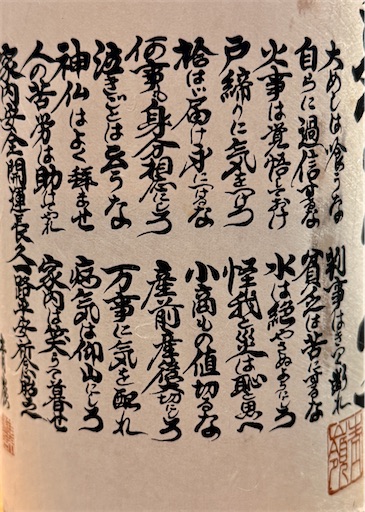 大めしは喰うな 判事はきつく断れ
自らに過信するな 貧乏は苦にするな
火事は覚悟しておけ 水は絶やさぬようにしろ
戸締りに気をつけろ 怪我と災は恥と思へ
拾はゞ届け身につけるな 小商もの値切るな
何事も身分相応にしろ 産前産後大切にしろ
泣きごとは云うな 万事に気を配れ
神仏はよく拝ませ 病気は仰山にしろ
人の苦労は助けてやれ 家内は笑ふて暮せ
家内安全 開運長久